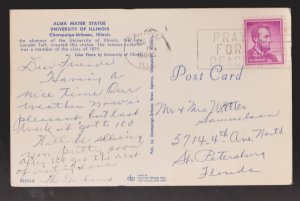 ALMA MATER STATUE
UNIVERSITY OF ILLINOIS
Champaign-Urbana, Illinois
An alumnus of the University of Illinois, the late
Lorado Taft, created this statue. The famous sculptor
was a member of the class of 1879.
Color Photo by University of Illinois
PRAY
FOR
PEACE
Post Card
Dear Friends
Having a
nice time. Our
weather now is
pleasant, but last
week it got to 100.
Will be seeing
you pretty soon
Mr & Mrs Walter
Samuelson
5714-4th Ave North
St. Petersburg
Florida